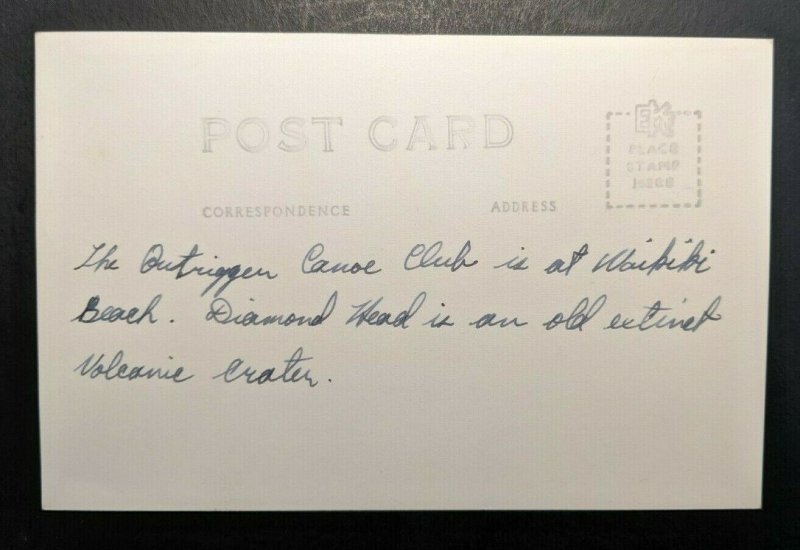 POST CARD
PLACE
STAMP
HERE
CORRESPONDENCE ADDRESS
The Outrigger Canoe Club is at Waikiki
Beach. Diamond Head is an old extinct
Volcanic Crater.